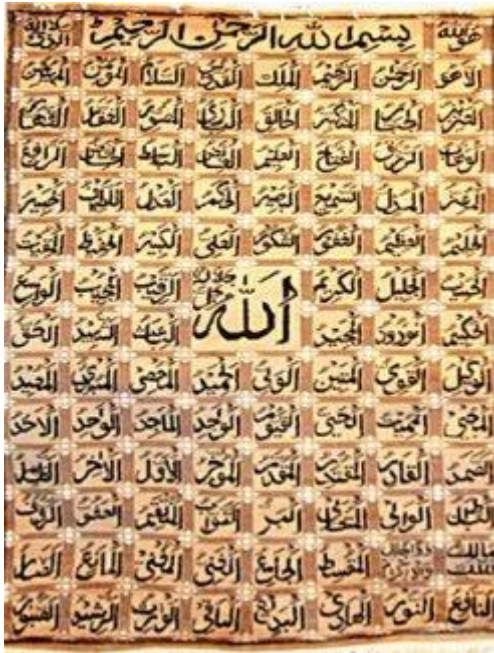 بسم الله الرحمن الرحيم
الرحمن الرحيم الملك القدوس السلام المؤمن المهيمن
العزيز الجبار المتكبر الخالق البارئ المصور الغفار القهار
الوهاب الرزاق الفتاح العليم القابض الباسط الخافض الرافع
المعز المذل السميع البصير الحكم العدل اللطيف الخبير
الحليم العظيم الغفور الشكور العلي الكبير الحفيظ المقيت
الحسيب الجليل الكريم الله جل جلاله الرقيب المجيب الواسع
الحكيم الودود المجيد الباعث الشهيد الحق
الوكيل القوي المتين الولي الحميد المحصي المبدئ المعيد
المحيي المميت الحي القيوم الواجد الماجد الواحد الاحد
الصمد القادر المقتدر المقدم المؤخر الاول الاخر الظاهر
الباطن الوالي المتعالي البر التواب المنتقم العفو الرؤف
مالك الملك ذو الجلال والاكرام المقسط الجامع الغني المغني المانع الضار
النافع النور الهادي البديع الباقي الوارث الرشيد الصبور